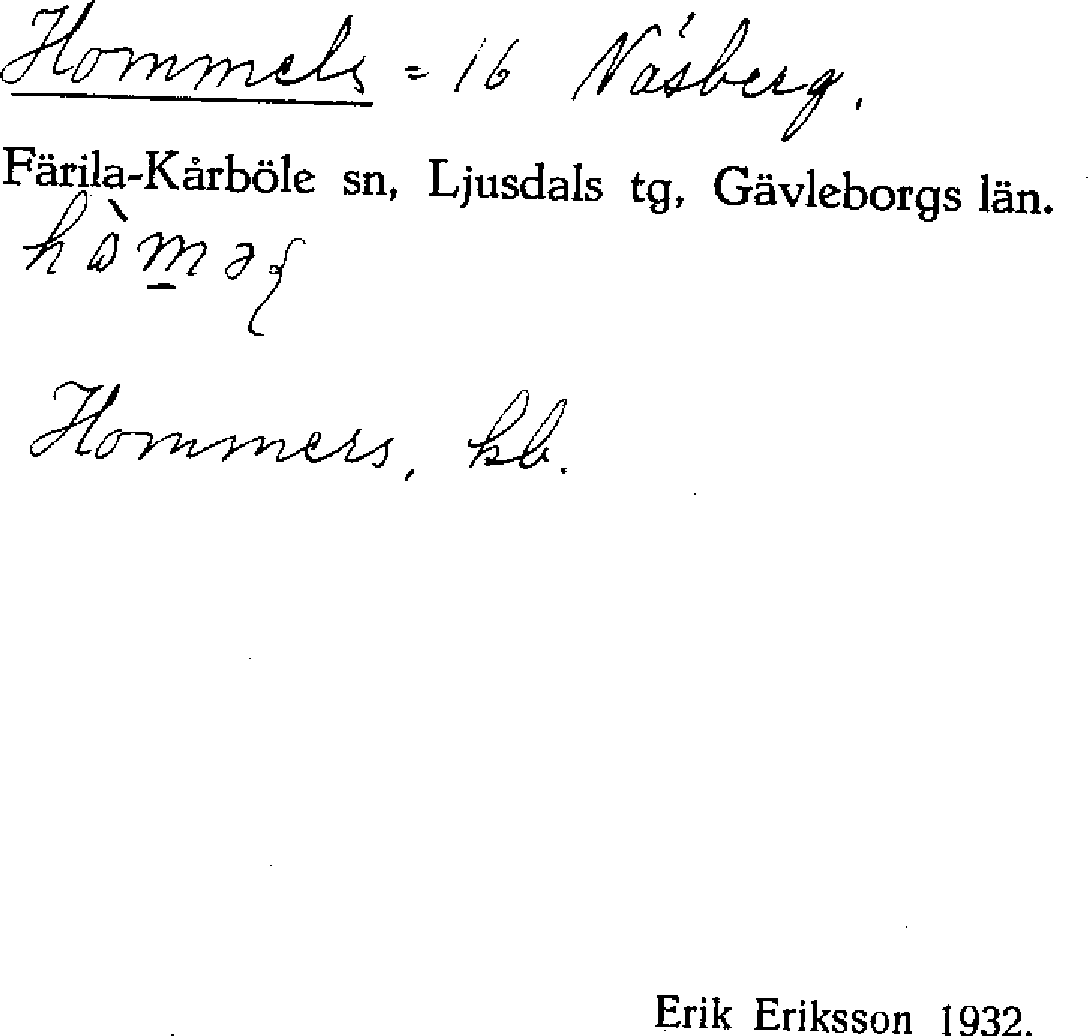 Hommels = 16 Näsberg.
Färila-Kårböle sn, Ljusdals tg, Gävleborgs län.
Hommers, kb.
Erik Eriksson 1932.